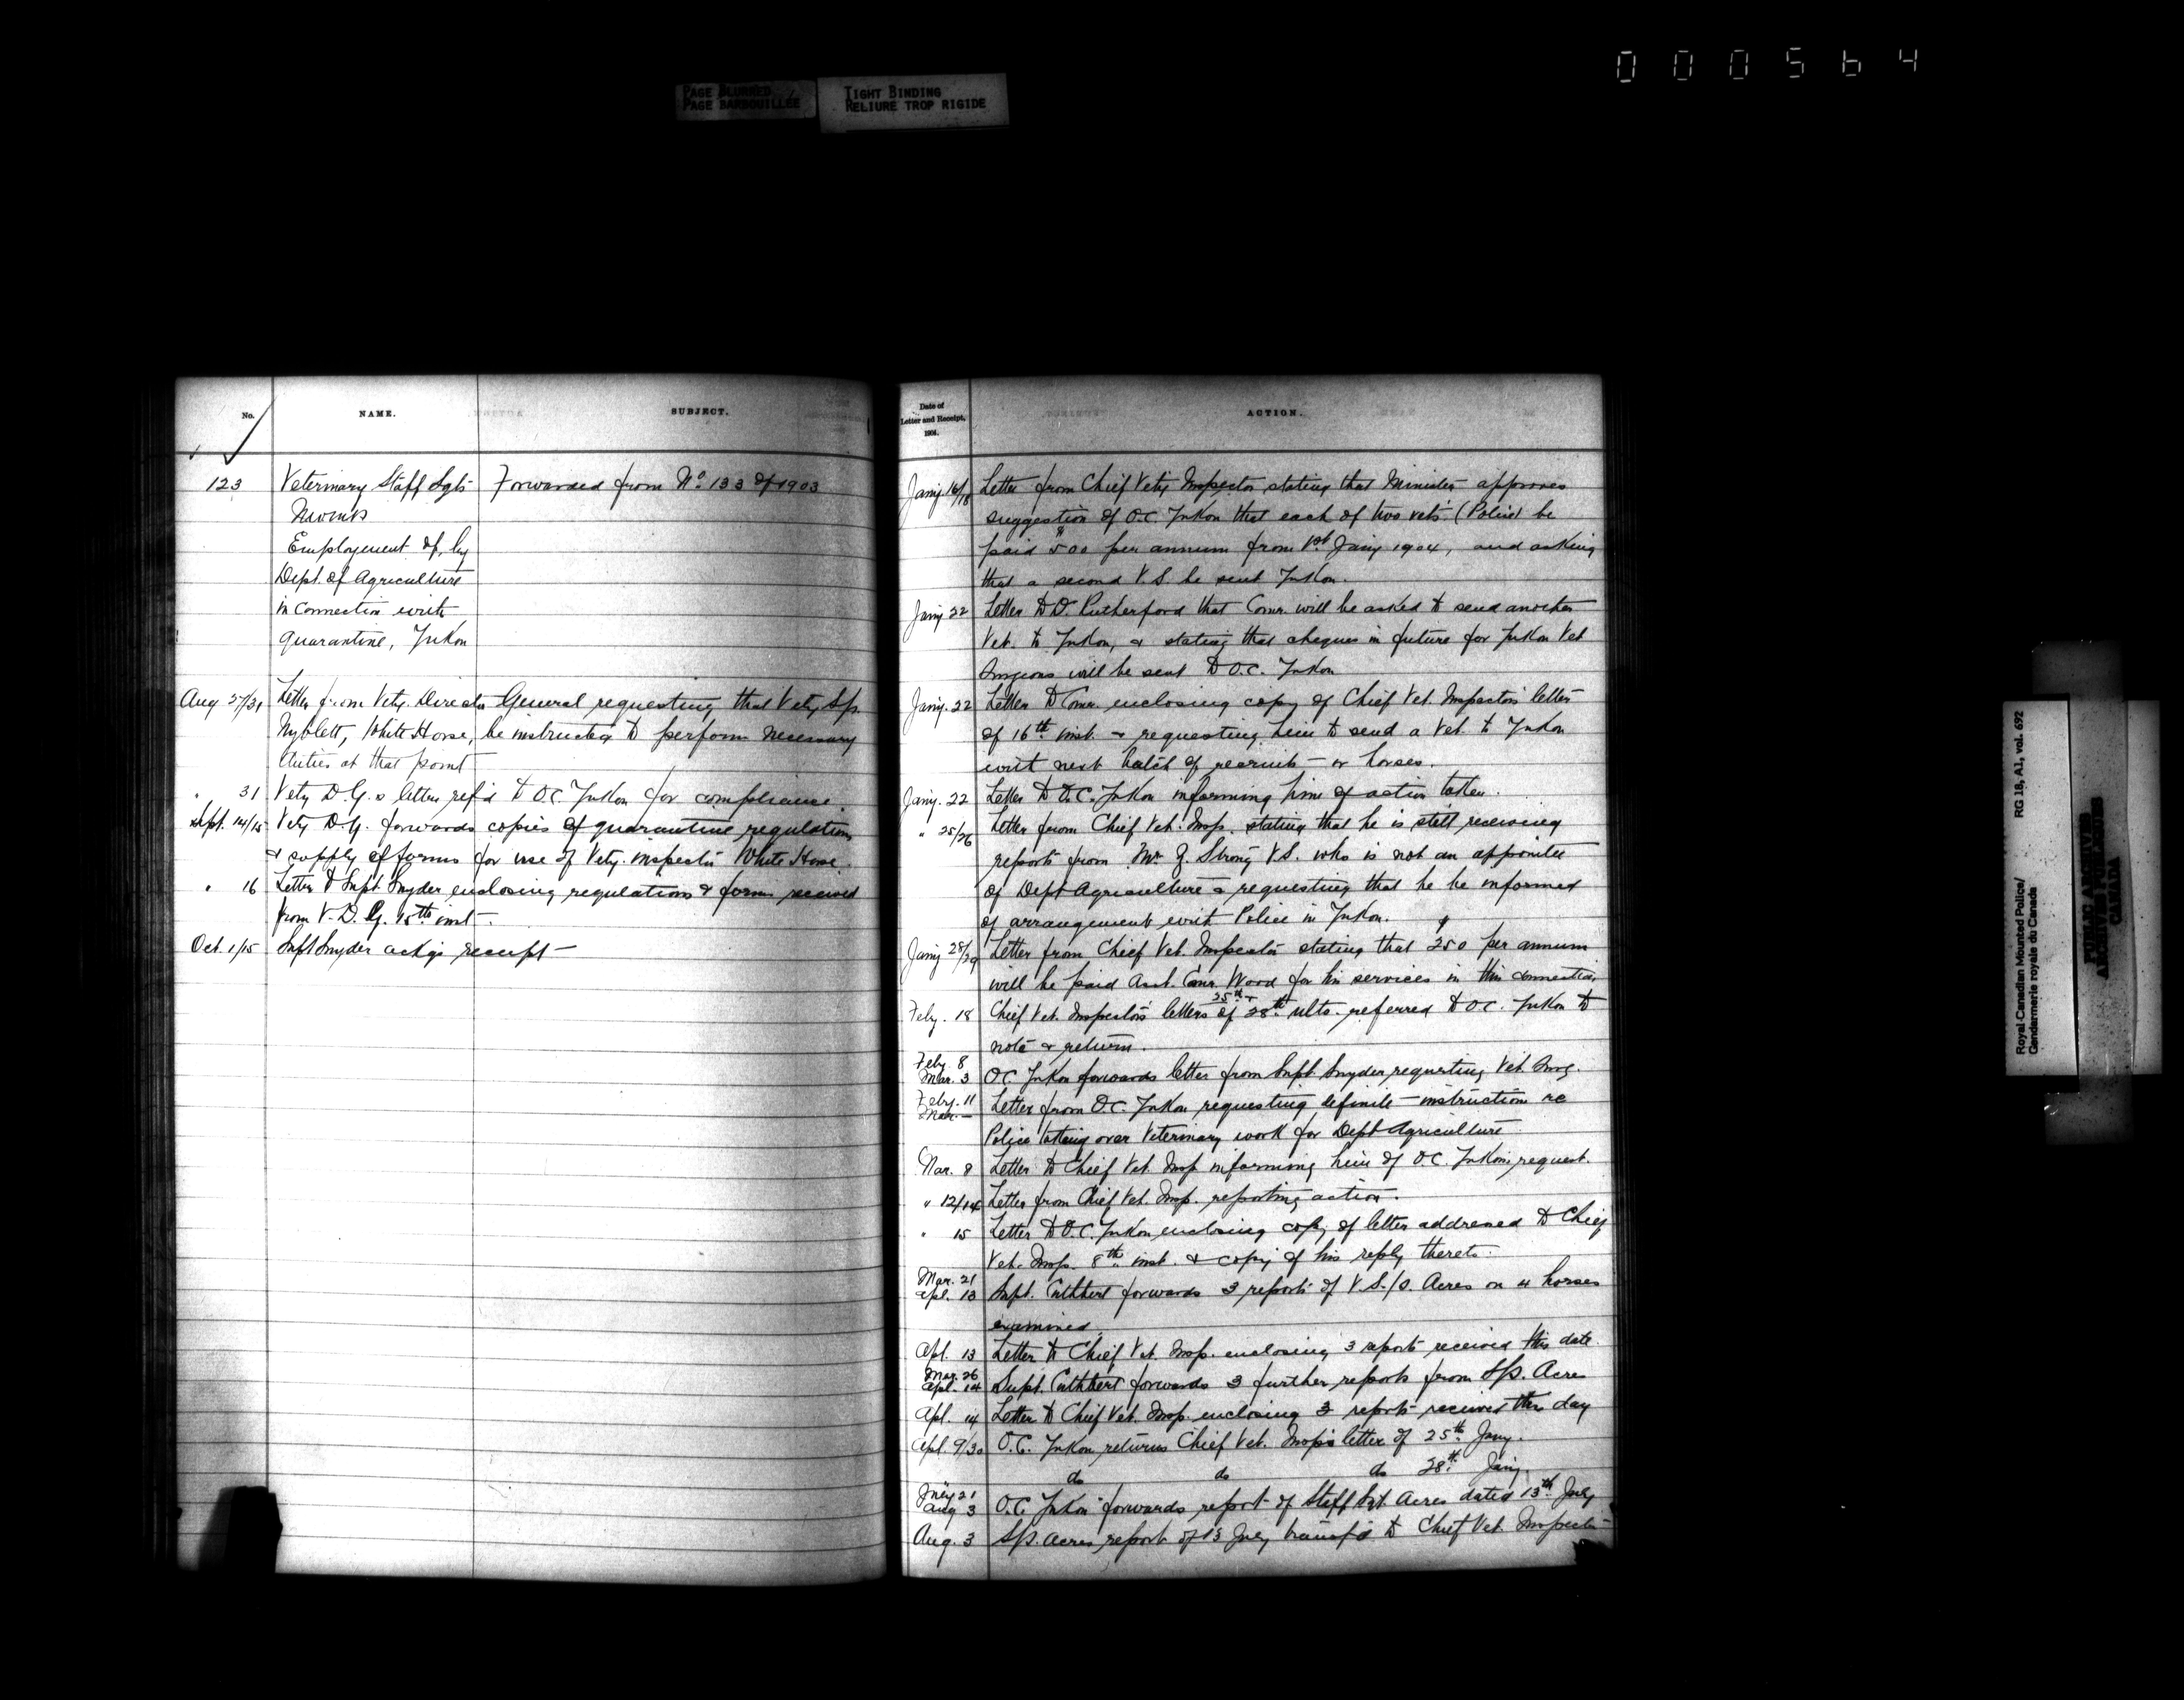 000564
PAGE BLURRED
PAGE BARBOUILLÉE
TIGHT BINDING
RELIURE TROP RIGIDE
No.
NAME.
SUBJECT.
123
Veterinary Staff Sgts
Forwarded from No. 133 of 1903
Employement of, by
Dept. of Agriculture
in connection with
quarantine, Yukon
Aug 27/31 Letter from Vety. Director General requesting that Vety S/s.
Nyblett, White Horse, be instructed to perform necessary
duties at that point
" 31 Vety D.G.s letter ref'd to O.C. Yukon for compliance.
Sept. 14/15 Vety D.G. forwards copies of quarantine regulations
& supply of forms for use of Vety. inspector White Horse.
" 16 Letter to Supt. Snyder enclosing regulations & forms received
from V.D.G. 15th inst.
Oct. 1/15 Supt Snyder ackgs receipt
Date of
Letter and Receipt,
1904.
ACTION.
Jany 16/18 Letter from Chief Vety Inspector stating that Minister approves
suggestion of O.C. Yukon that each of two vets (Police) be
paid $500 per annum from 1st Jany 1904, and asking
that a second V.S. be sent Yukon.
Jany 22 Letter to D. Rutherford that Comr. will be asked to send another
Vet. to Yukon, & stating that cheques in future for Yukon Vet
Surgeons will be sent to O.C. Yukon
Jany. 22 Letter to Comr. enclosing copy of Chief Vet. Inspectors letter
of 16th inst. & requesting him to send a Vet. to Yukon
with next batch of recruits or horses.
Jany. 22 Letter to O.C. Yukon informing him of action taken.
" 25/26 Letter from Chief Vet. Insp. stating that he is still receiving
reports from Mr J. Strong V.S. who is not an appointee
of Dept Agriculture & requesting that he be informed
of arrangements with Police in Yukon.
Jany 28/29 Letter from Chief Vet. Inspector stating that $250 per annum
will be paid Asst. Comr. Wood for his services in this connection
Feby. 18 Chief Vet. Inspectors letters of 25th & 28th ulto. referred to O.C. Yukon to
note & return.
Feby. 8
Mar. 3 O.C. Yukon forwards letter from Supt. Snyder requesting Vet. Surg.
Feby. 11
Mar. — Letter from O.C. Yukon requesting definite instruction re
Police taking over Veterinary work for Dept Agriculture
Mar. 8 Letter to Chief Vet. Insp informing him of O.C. Yukons request.
" 12/14 Letter from Chief Vet. Insp. reporting action.
" 15 Letter to O.C. Yukon enclosing copy of letter addressed to Chief
Vet. Insp. 8th inst. & copy of his reply thereto.
Mar. 21
Apl. 13 Supt. Cuthbert forwards 3 reports of V.S./S. Acres on 4 horses
examined.
Apl. 13 Letter to Chief Vet. Insp. enclosing 3 reports received this date.
Mar. 26
Apl. 14 Supt. Cuthbert forwards 3 further reports from S/S. Acres
Apl. 14 Letter to Chief Vet. Insp. enclosing 3 reports received this day
Apl. 9/30 O.C. Yukon returns Chief Vet. Insps letter of 25th Jany.
do do do 28th Jany
July 21
Aug 3 O.C. Yukon forwards report of Staff Sgt. Acres dated 13th July
Aug. 3 S/S. Acres report of 13 July transf'd to Chief Vet. Inspector
Royal Canadian Mounted Police/
Gendarmerie royale du Canada
RG 18, A1, vol. 692
PUBLIC ARCHIVES
ARCHIVES PUBLIQUES
CANADA